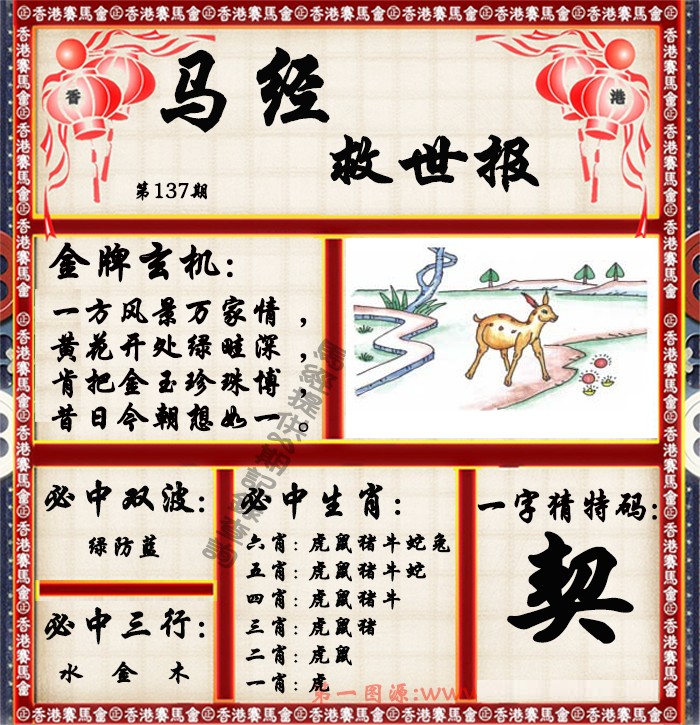 香港賽馬會
香
港
马经
救世报
第137期
金牌玄机：
一方风景万家情，
黄花开处绿畦深，
肯把金玉珍珠博，
昔日今朝想如一。
必中双波：
绿防蓝
必中三行：
水 金 木
必中生肖：
六肖：虎鼠猪牛蛇兔
五肖：虎鼠猪牛蛇
四肖：虎鼠猪牛
三肖：虎鼠猪
二肖：虎鼠
一肖：虎
一字猜特码：
契
第一图源:www